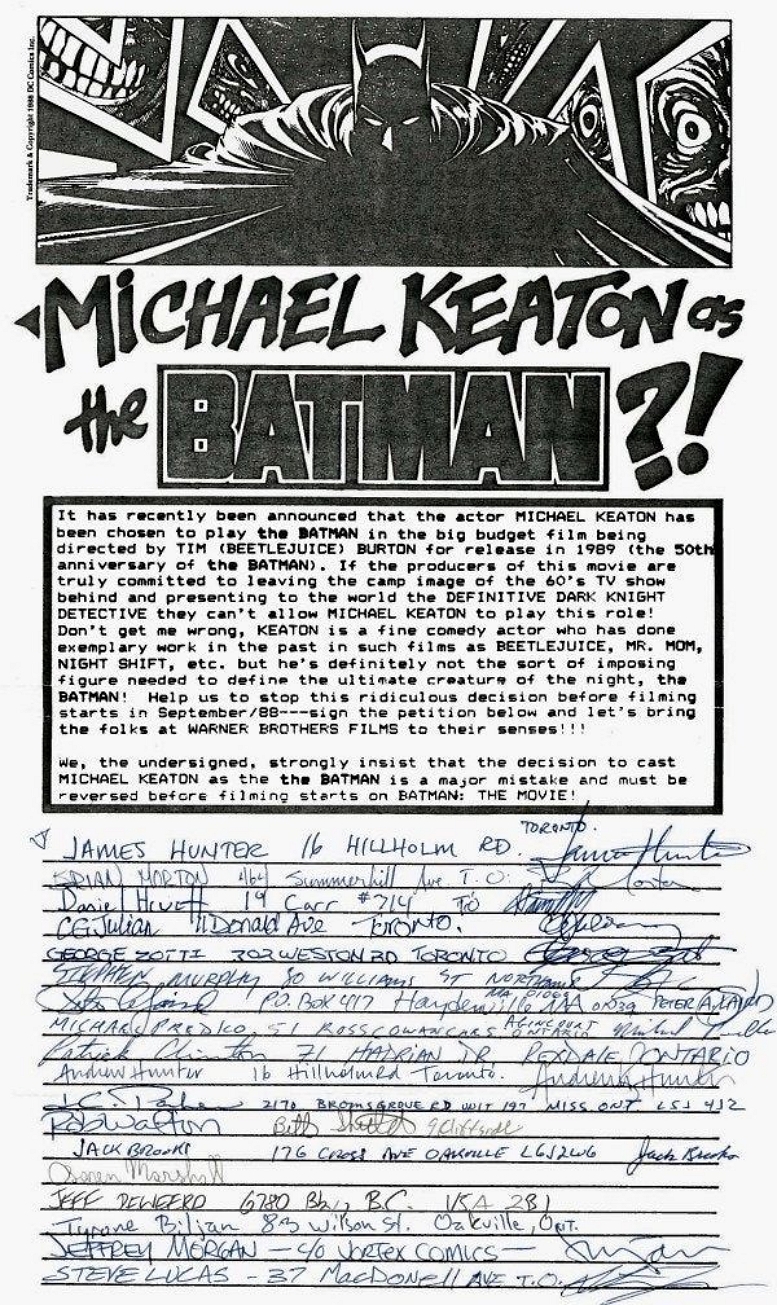 Trademark & Copyright 1988 DC Comics Inc.
MiCHAEL KEATON as
the BATMAN ?!
It has recently been announced that the actor MICHAEL KEATON has
been chosen to play the BATMAN in the big budget film being
directed by TIM (BEETLEJUICE) BURTON for release in 1989 (the 50th
anniversary of the BATMAN). If the producers of this movie are
truly committed to leaving the camp image of the 60's TV show
behind and presenting to the world the DEFINITIVE DARK KNIGHT
DETECTIVE they can't allow MICHAEL KEATON to play this role!
Don't get me wrong, KEATON is a fine comedy actor who has done
exemplary work in the past in such films as BEETLEJUICE, MR. MOM,
NIGHT SHIFT, etc. but he's definitely not the sort of imposing
figure needed to define the ultimate creature of the night, the
BATMAN! Help us to stop this ridiculous decision before filming
starts in September/88---sign the petition below and let's bring
the folks at WARNER BROTHERS FILMS to their senses!!!
We, the undersigned, strongly insist that the decision to cast
MICHAEL KEATON as the the BATMAN is a major mistake and must be
reversed before filming starts on BATMAN: THE MOVIE!
JAMES HUNTER 16 HILLHOLM RD. TORONTO. James Hunter
BRIAN MORTON 464 Summerhill Ave. T.O. B Morton
Daniel 19 Carr #714 TO
CG Julian 11 Donald Ave Toronto.
GEORGE ZOTTI 302 WESTON RD TORONTO
STEPHEN MURPHY 30 WILLIAMS ST
P.O. BOX 417 Haydenville MA 01039 PETER A. LAIRD
51 AGINCOURT ONTARIO
Patrick 71 HADRIAN DR REXDALE ONTARIO
Andrew Hunter 16 Hillholm Rd Toronto. Andrew Hunter
2170 BROMSGROVE RD UNIT 197 MISS. ONT L5J 4J2
Rob Walton Beth
JACK BROOKS 176 CROSS AVE OAKVILLE L6J2W6 Jack Brooks
Marshall
JEFF 6780 B.C. V5A 2B1
Tyrone Biljan 83 Wilson St. Oakville, Ont.
JEFFREY MORGAN - c/o VORTEX COMICS -
STEVE LUCAS - 37 MacDonell AVE T.O.